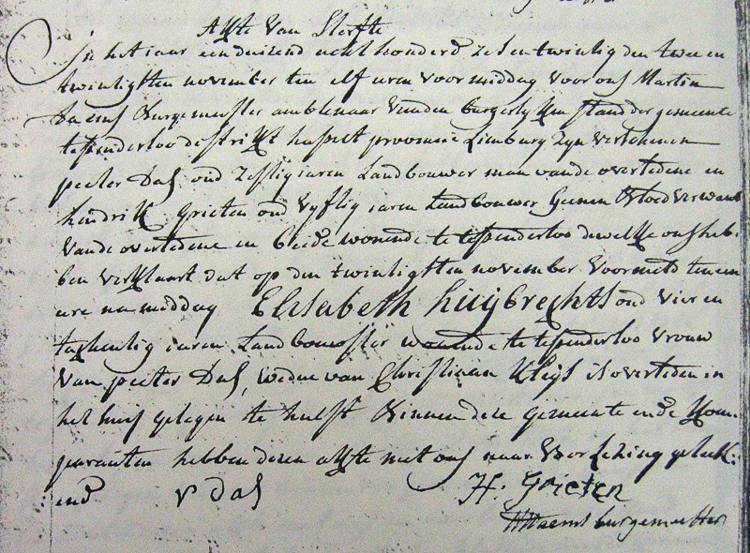 Akte van Sterfte
In het iaar eenduizend acht honderd zes en twintig den twee en
twinligsten november ten elf uren voormiddag voor ons Martin
Daems Burgemeester ambtenaar vanden burgerlyken stand der gemeente
tessenderloo destrikt hasselt provincie Limburg zyn verschenen
peeter Das oud zestig iaren Landbouwer man vande overledene en
hendrik Grieten oud vyftig iaren Landbouwer Geenen Bloedverwant
vande overledene en beide wonende te tessenderloo dewelke ons heb-
ben verklaart dat op den twintigsten november voormeld ten een
ure namiddag Elisabeth Luijbrechts oud vier en
tachentig iaren Landbouwster wonende te tessenderloo vrouw
van peeter Das, weduwe van Christiaan Kleys is overleden in
het huis gelegen te hulst Binnen deze gemeente ende kom-
paranten hebben dezen akte met ons naer voorlezing geteek-
end p das H: Grieten
M Daems burgemeester